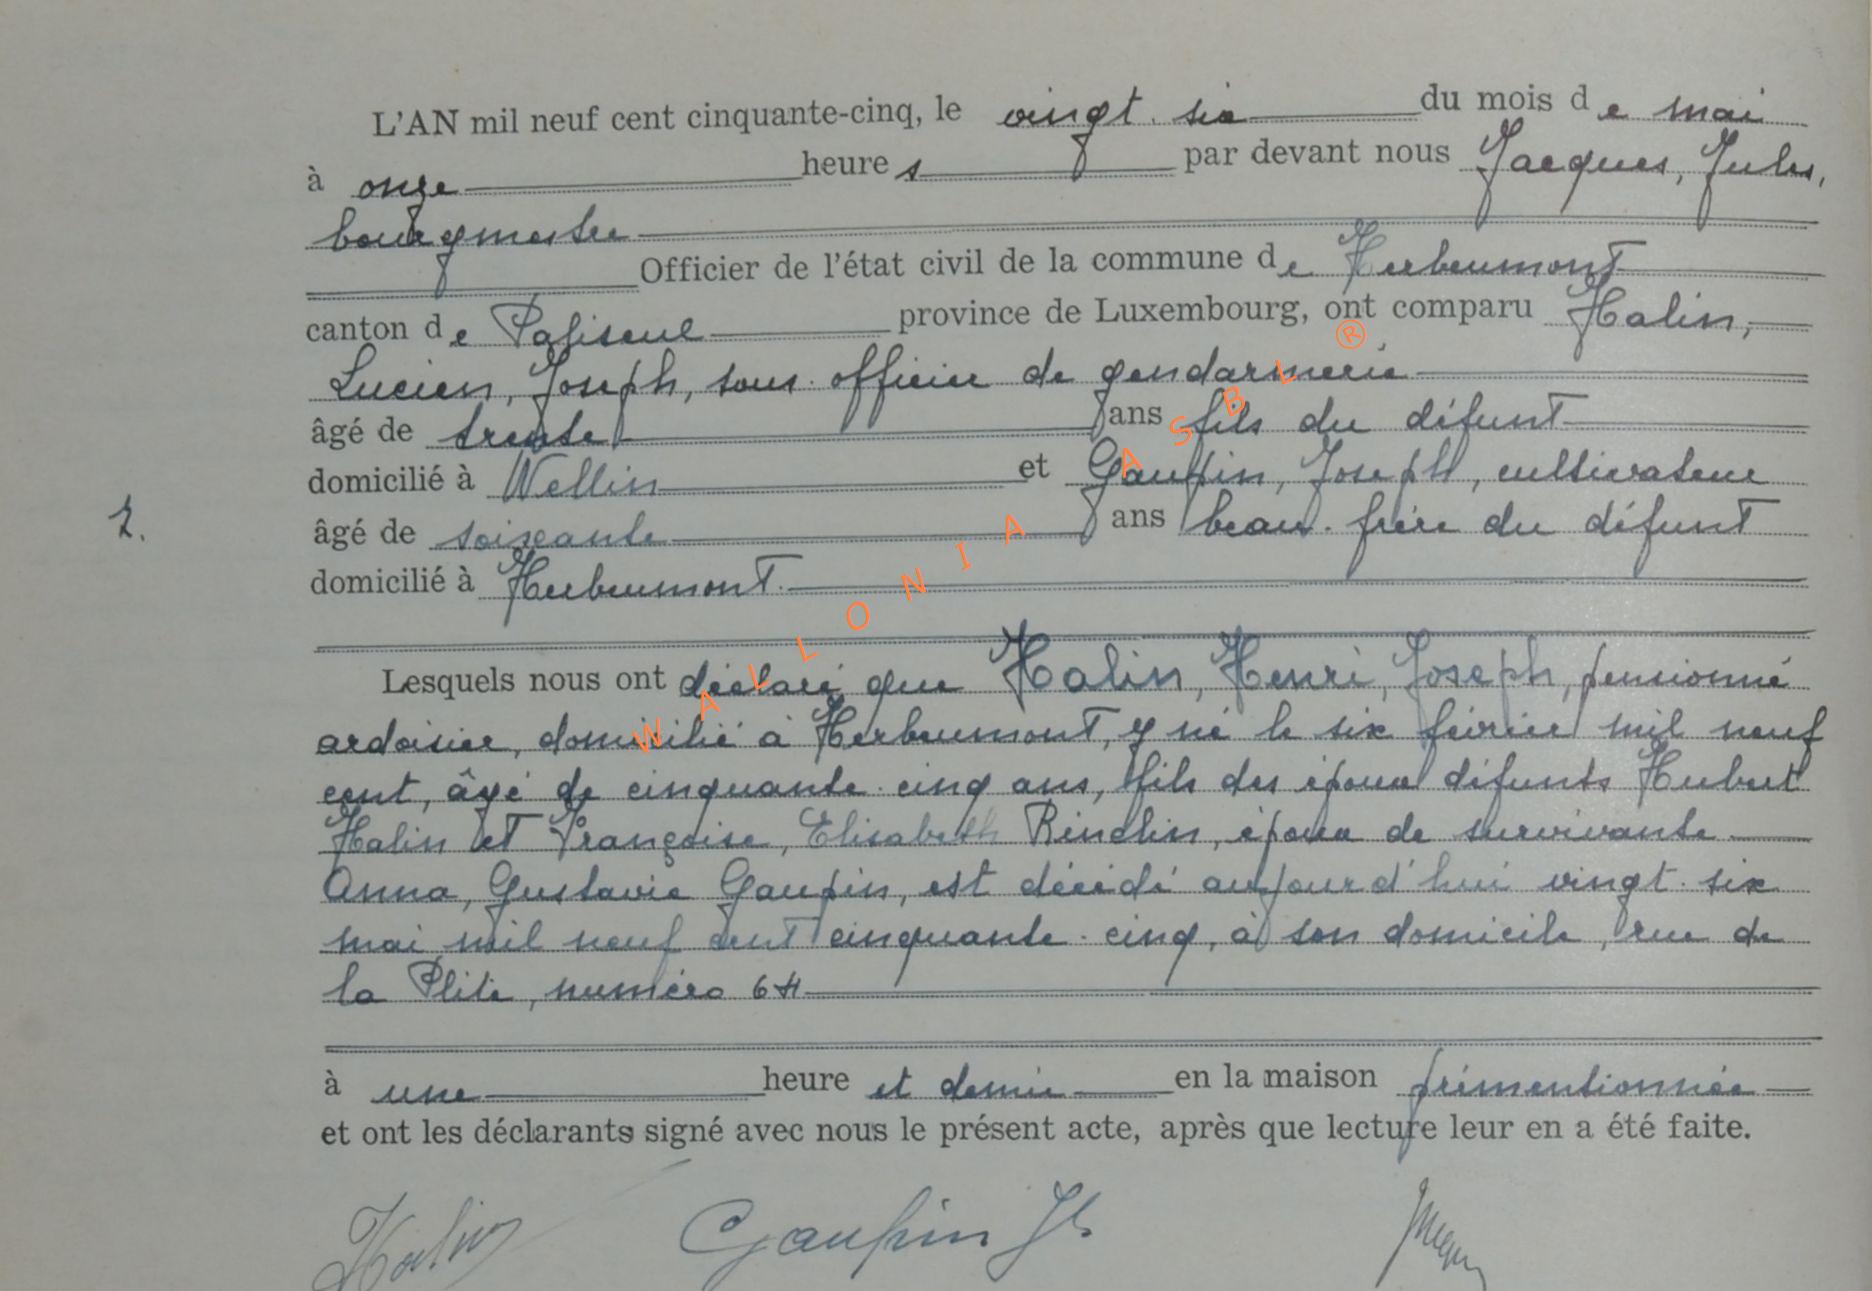 L'AN mil neuf cent cinquante-cinq, le vingt-six du mois de mai
à onze heures par devant nous Jacques, Jules,
bourgmestre
Officier de l'état civil de la commune de Herbeumont
canton de Paliseul province de Luxembourg, ont comparu Halin,
Lucien, Joseph, sous-officier de gendarmerie
âgé de trente ans fils du défunt
domicilié à Wellin et Gaupin, Joseph, cultivateur
2.
âgé de soixante ans beau-frère du défunt
domicilié à Herbeumont.
Lesquels nous ont déclaré que Halin, Henri, Joseph, pensionné
ardoisier, domicilié à Herbeumont, y né le six février mil neuf
cent, âgé de cinquante-cinq ans, fils des époux défunts Hubert
Halin et Françoise, Elisabeth, époux de survivante
Anna, Gustavie Gaupin, est décédé aujourd'hui vingt-six
mai mil neuf cent cinquante-cinq, à son domicile, rue de
la, numéro
à une heure et demie en la maison prémentionnée
et ont les déclarants signé avec nous le présent acte, après que lecture leur en a été faite.
Halin Gaupin Js Jacques
WALLONIA ASBL ®